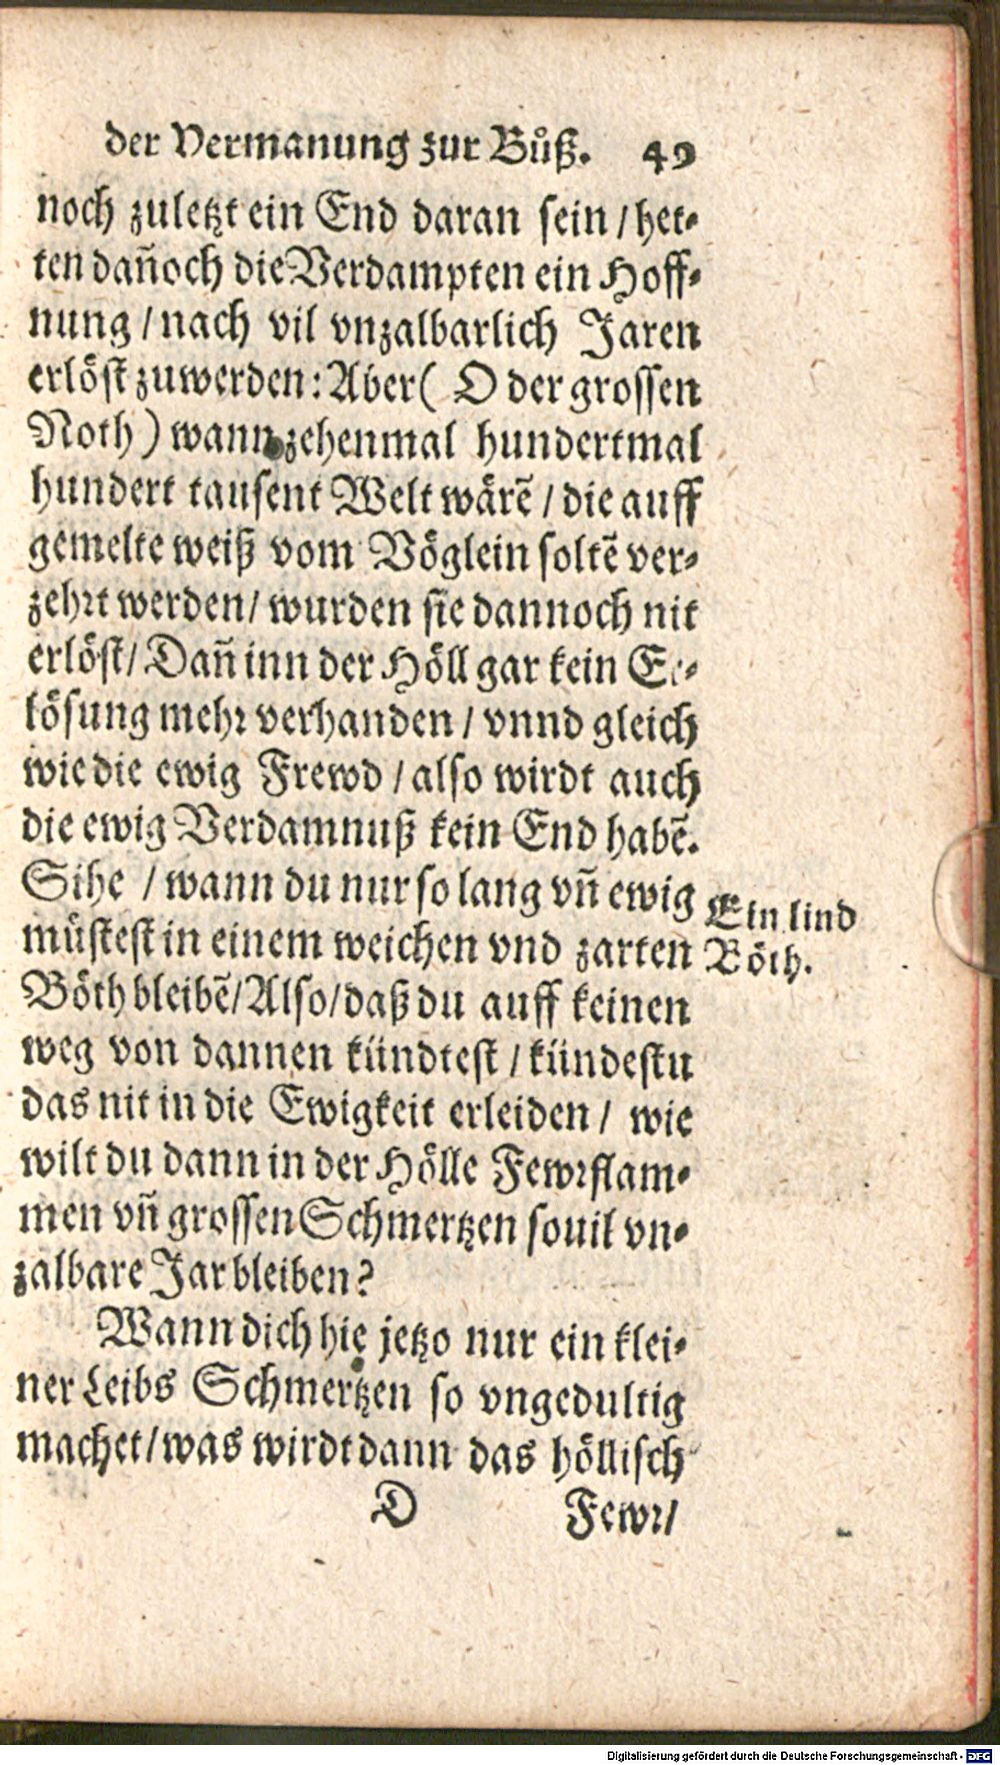 der Vermanung zur Bůß. 49
noch zuletzt ein End daran sein / het-
ten dañoch die Verdampten ein Hoff-
nung / nach vil vnzalbarlich Jaren
erlöst zuwerden: Aber ( O der grossen
Noth ) wann zehenmal hundertmal
hundert tausent Welt wärẽ / die auff
gemelte weiß vom Vöglein soltẽ ver-
zehrt werden / wurden sie dannoch nit
erlöst / Dañ inn der Höll gar kein Er-
lösung mehr verhanden / vnnd gleich
wie die ewig Frewd / also wirdt auch
die ewig Verdamnuß kein End habẽ.
Sihe / wann du nur so lang vñ ewig
müstest in einem weichen vnd zarten
Böth bleibẽ / Also / daß du auff keinen
weg von dannen kündtest / kündestu
das nit in die Ewigkeit erleiden / wie
wilt du dann in der Hölle Fewrflam-
men vñ grossen Schmertzen souil vn-
zalbare Jar bleiben?
Wann dich hie jetzo nur ein klei-
ner Leibs Schmertzen so vngedultig
machet / was wirdt dann das höllisch
D Fewr /
Ein lind
Böth.
Digitalisierung gefördert durch die Deutsche Forschungsgemeinschaft - DFG